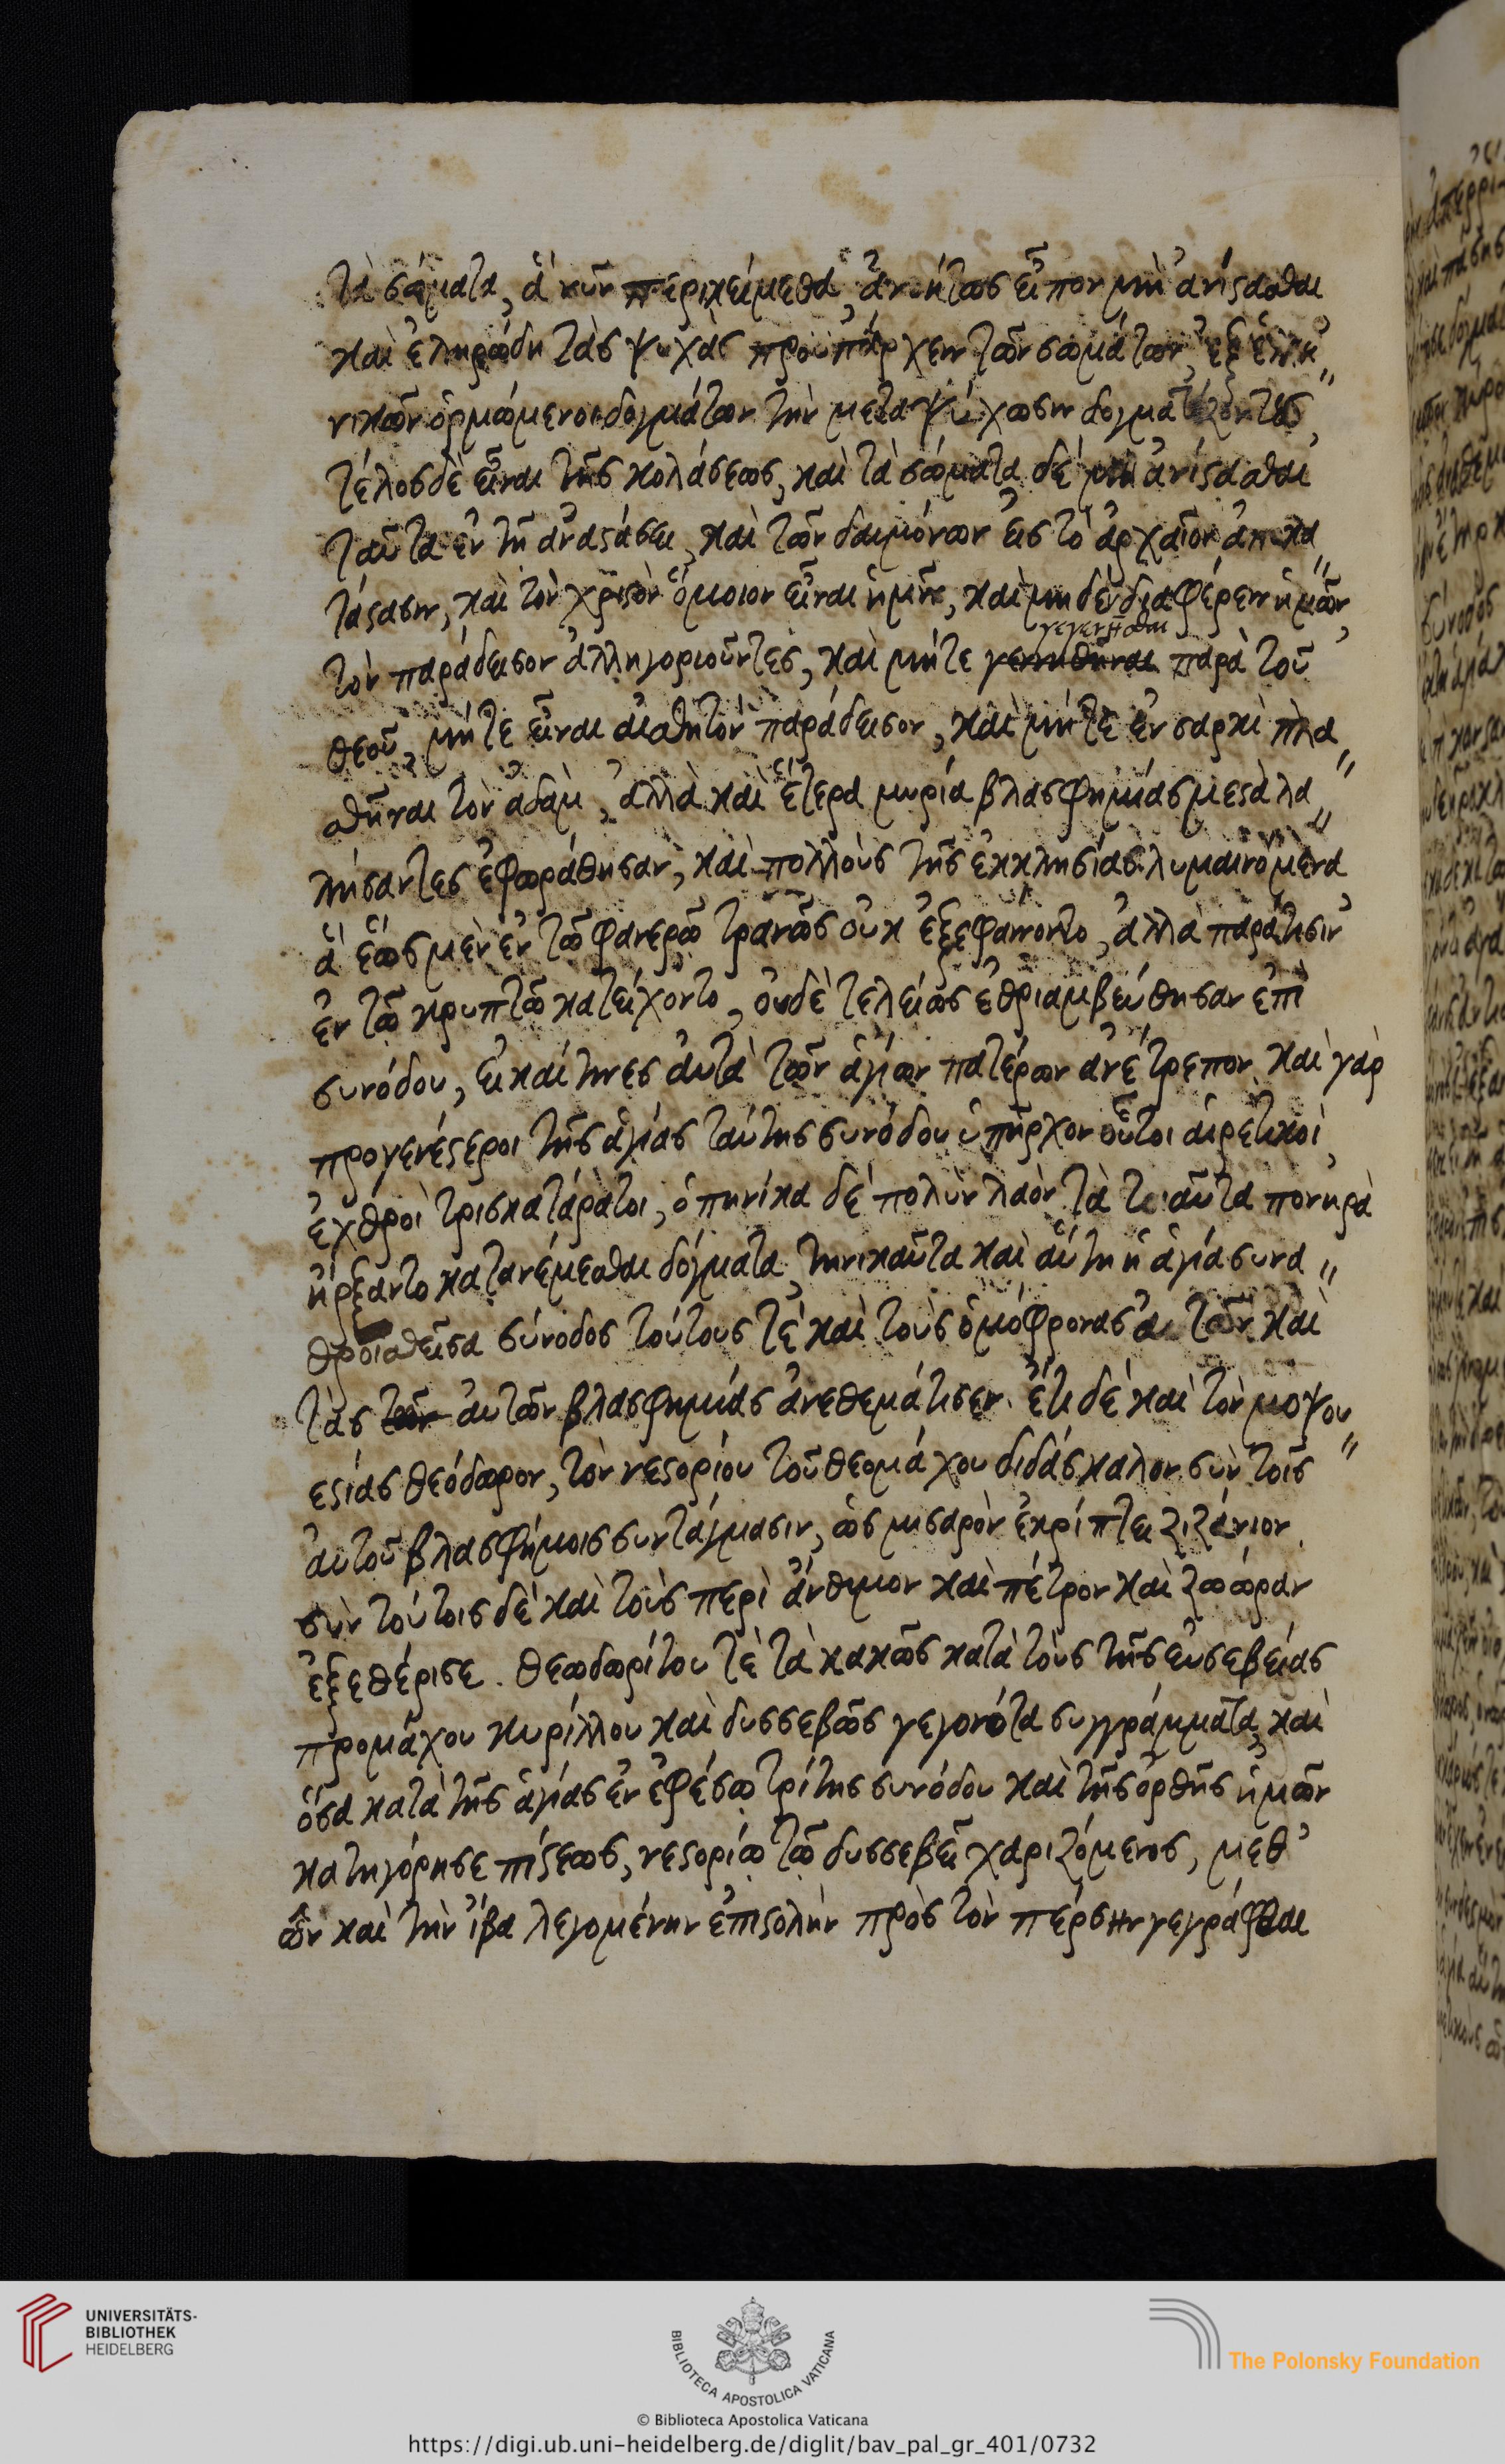 τὰ σώματα, ἃ νῦν περικείμεθα, ἀνοήτως εἶπον μὴ ἀνίστασθαι
καὶ ἐληρώδη τὰς ψυχὰς προϋπάρχειν τῶν σωμάτων, ἐξ ἑλλη
νικῶν ὁρμώμενοι δογμάτων τὴν μεταψύχωσιν δογματίζοντες,
τέλος δὲ εἶναι τῆς κολάσεως, καὶ τὰ σώματα δὲ μὴ ἀνίστασθαι
ταῦτα ἐν τῇ ἀναστάσει, καὶ τῶν δαιμόνων εἰς τὸ ἀρχαῖον ἀποκα
τάστασιν, καὶ τὸν χριστὸν ὅμοιον εἶναι ἡμῖν, καὶ μηδὲ διαφέρειν ἡμῶν,
γεγενῆσθαι
τὸν παράδεισον ἀλληγοριοῦντες, καὶ μήτε γεννηθῆναι παρὰ τοῦ
θεοῦ, μήτε εἶναι αἰσθητὸν παράδεισον, καὶ μήτε ἐν σαρκὶ πλα
σθῆναι τὸν ἀδὰμ, ἀλλὰ καὶ ἕτερα μυρία βλασφημίας μεστὰ λα
λήσαντες ἐφωράθησαν, καὶ πολλοὺς τῆς ἐκκλησίας λυμαινόμενα
ἃ ἕως μὲν ἐν τῶ φανερῶ τρανῶς οὐκ ἐξεφαίνοντο, ἀλλὰ παράτισιν
ἐν τῶ κρυπτῶ κατείχοντο, οὐδὲ τελείως ἐθριαμβεύθησαν ἐπὶ
συνόδου, εἰ καί τινες αὐτὰ τῶν ἁγίων πατέρων ἀνέτρεπον. καὶ γὰρ
προγενέστεροι τῆς ἁγίας ταύτης συνόδου ὑπῆρχον οὗτοι αἱρετικοὶ,
ἐχθροὶ τρισκατάρατοι, ὁπηνίκα δὲ πολὺν λαὸν τὰ τοιαῦτα πονηρὰ
ἤρξαντο κατανέμεσθαι δόγματα, τηνικαῦτα καὶ αὕτη ἡ ἁγία συνα
θροισθεῖσα σύνοδος τούτους τὲ καὶ τοὺς ὁμόφρονας αὐτῶν καὶ
τὰς τῶν αὐτῶν βλασφημίας ἀνεθεμάτισεν. ἔτι δὲ καὶ τὸν μοψου
εστίας θεόδωρον, τὸν νεστορίου τοῦ θεομάχου διδάσκαλον σὺν τοῖς
αὐτοῦ βλασφήμοις συντάγμασιν, ὡς μισαρὸν ἐκρίπτει ζιζάνιον.
σὺν τούτοις δὲ καὶ τοὺς περὶ ἄνθιμον καὶ πέτρον καὶ ζωόραν
ἐξεθέρισε. θεωδωρίτου τὲ τὰ κακῶς κατὰ τοὺς τῆς εὐσεβείας
προμάχου κυρίλλου καὶ δυσσεβῶς γεγονότα συγγράμματα, καὶ
ὅσα κατὰ τῆς ἁγίας ἐν ἐφέσω τρίτης συνόδου καὶ τῆς ὀρθῆς ἡμῶν
κατηγόρησε πίστεως, νεστορίω τῶ δυσσεβεῖ χαριζόμενος, μεθ'
ὧν καὶ τὴν ἴβα λεγομένην ἐπιστολὴν πρὸς τὸν πέρσην γεγράφθαι
UNIVERSITÄTS-
BIBLIOTHEK
HEIDELBERG
BIBLIOTECA APOSTOLICA VATICANA
The Polonsky Foundation
© Biblioteca Apostolica Vaticana
https://digi.ub.uni-heidelberg.de/diglit/bav_pal_gr_401/0732